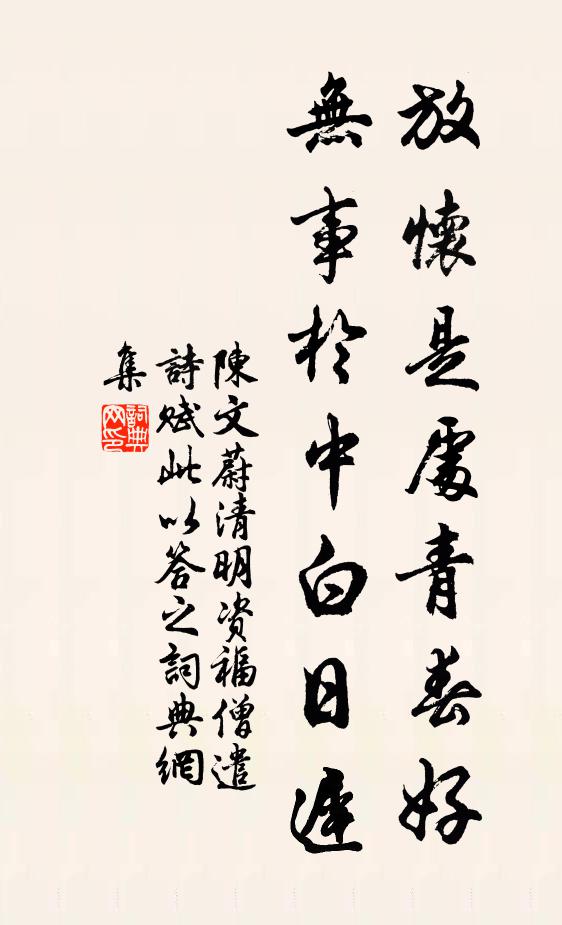 放懷是處青春好
無事於中白日遲
陳文蔚清明资福僧遣
詩賦此以答之詞典網
集
詞典
网印